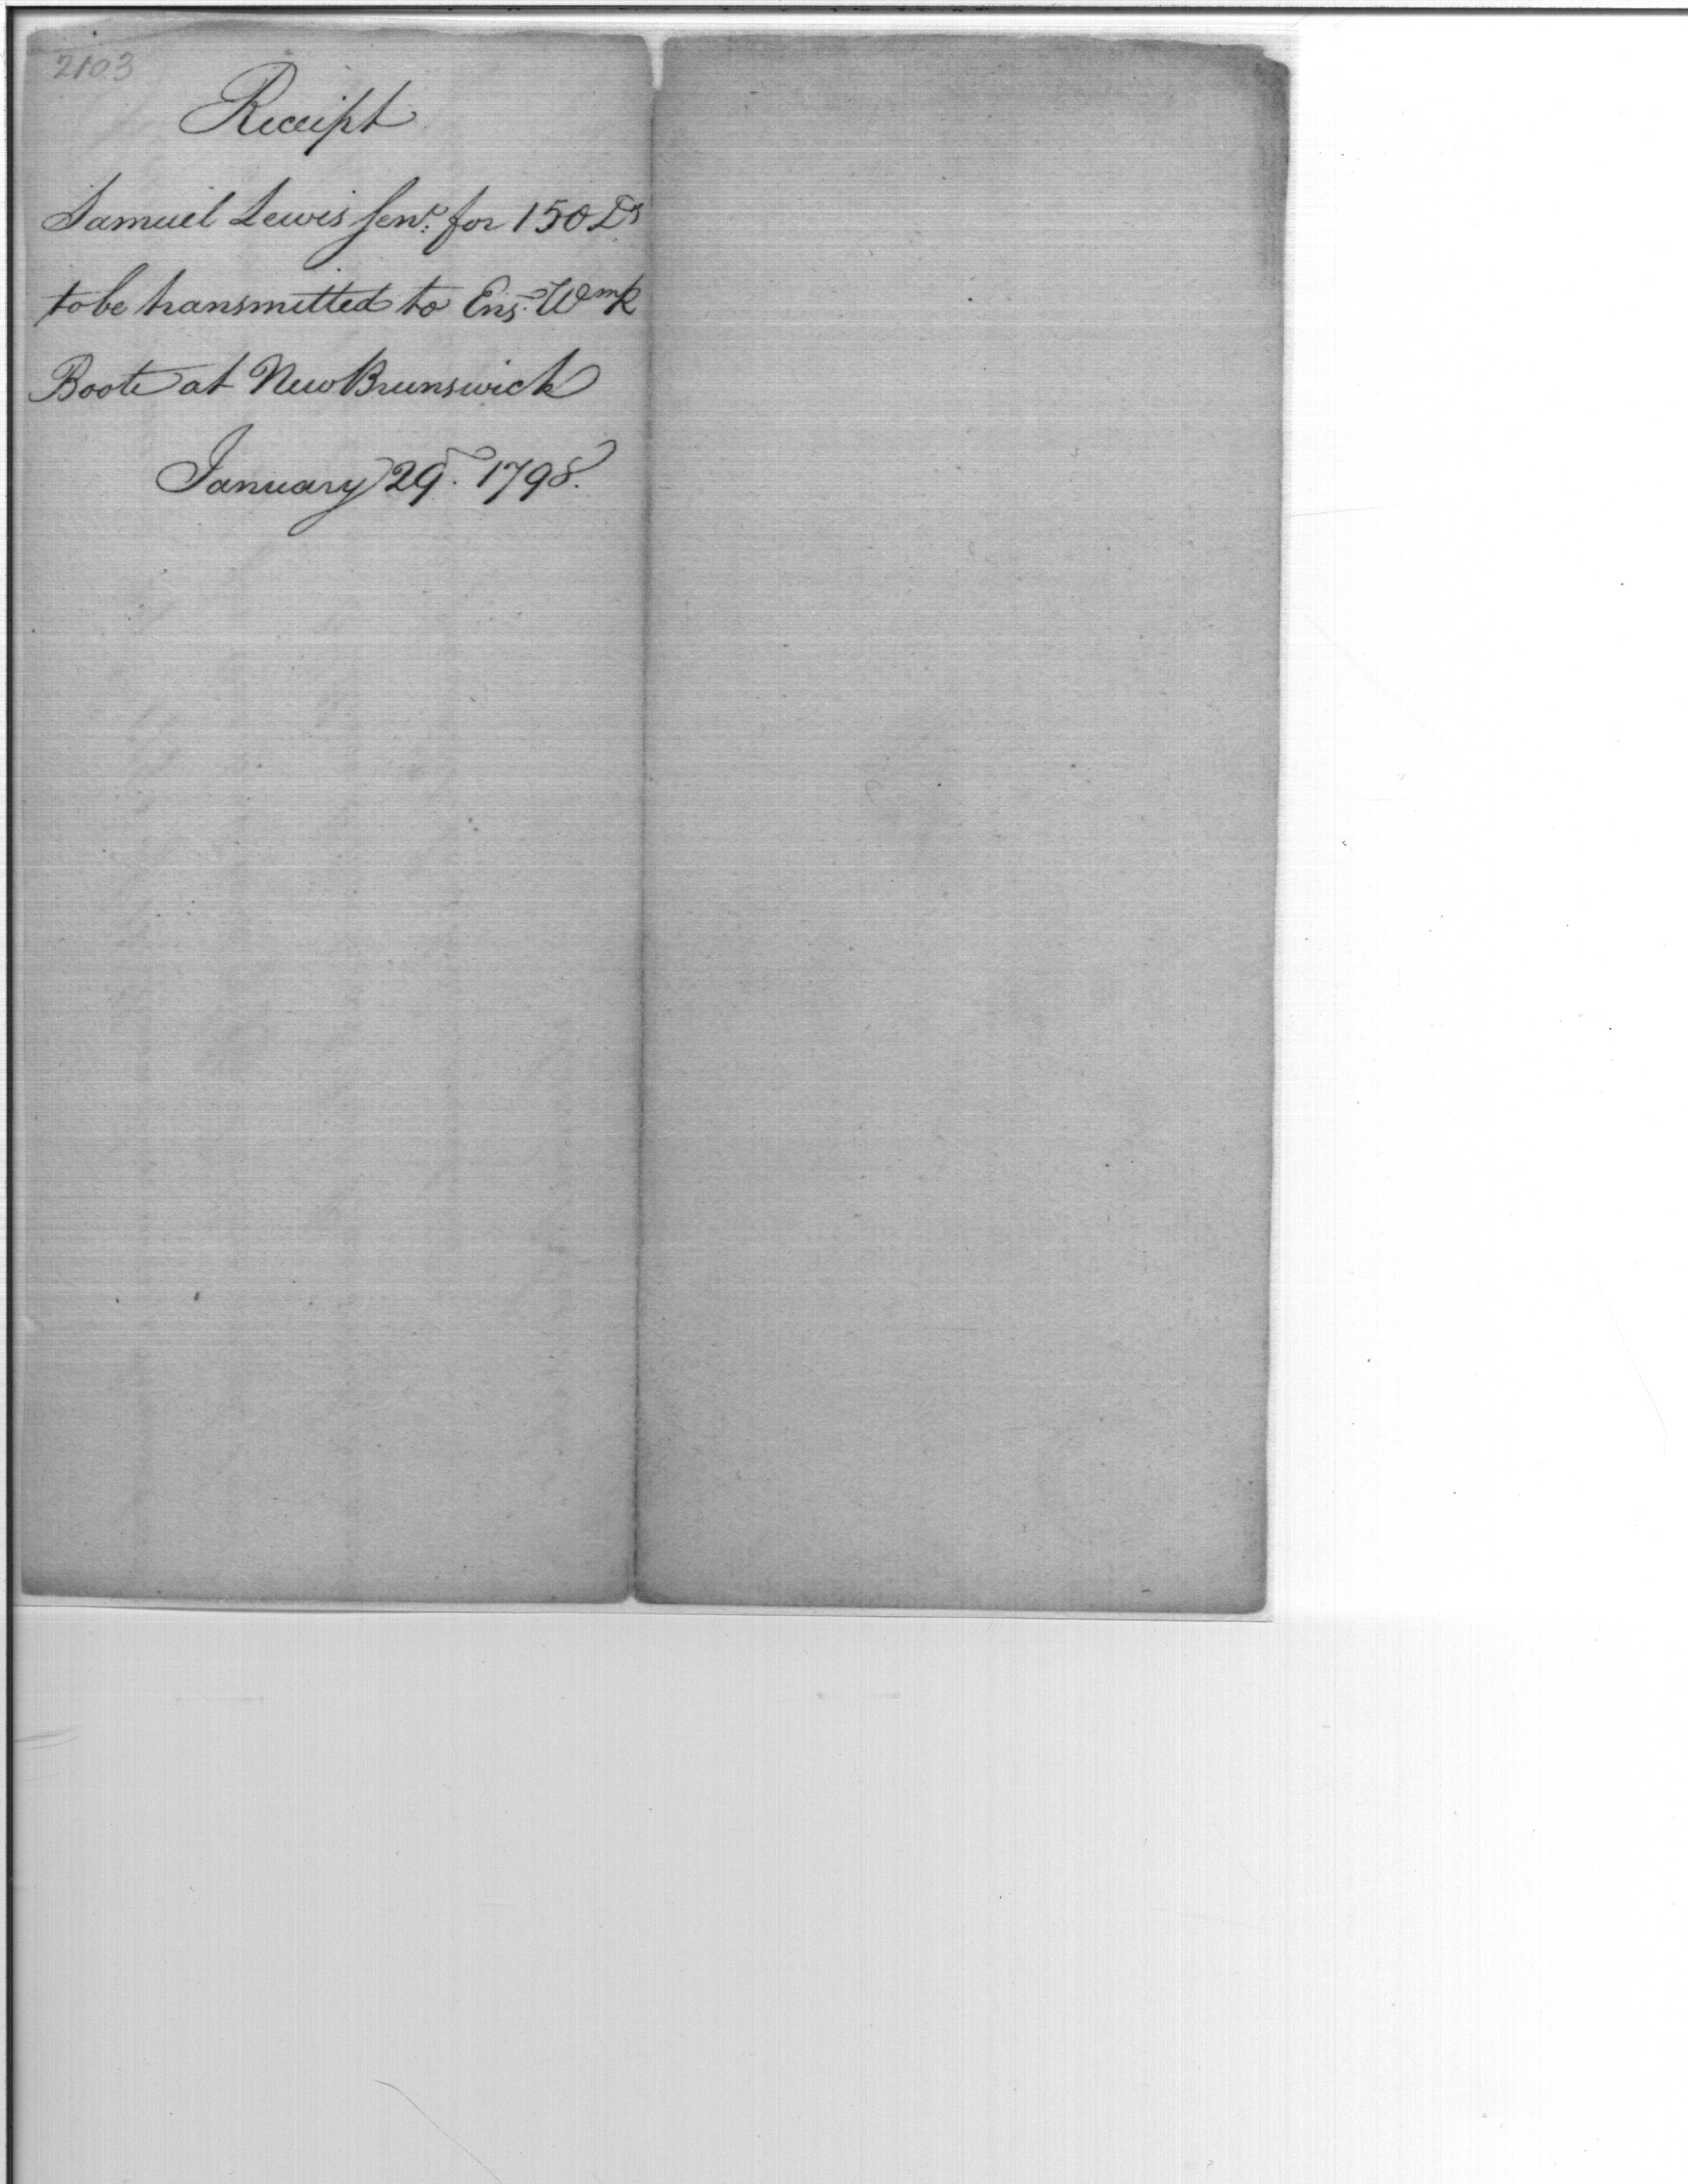 2103
Receipt
Samuel Lewis Senr. for 150 Ds
to be transmitted to Ens. Wm R
Boote at New Brunswick
January 29. 1798.